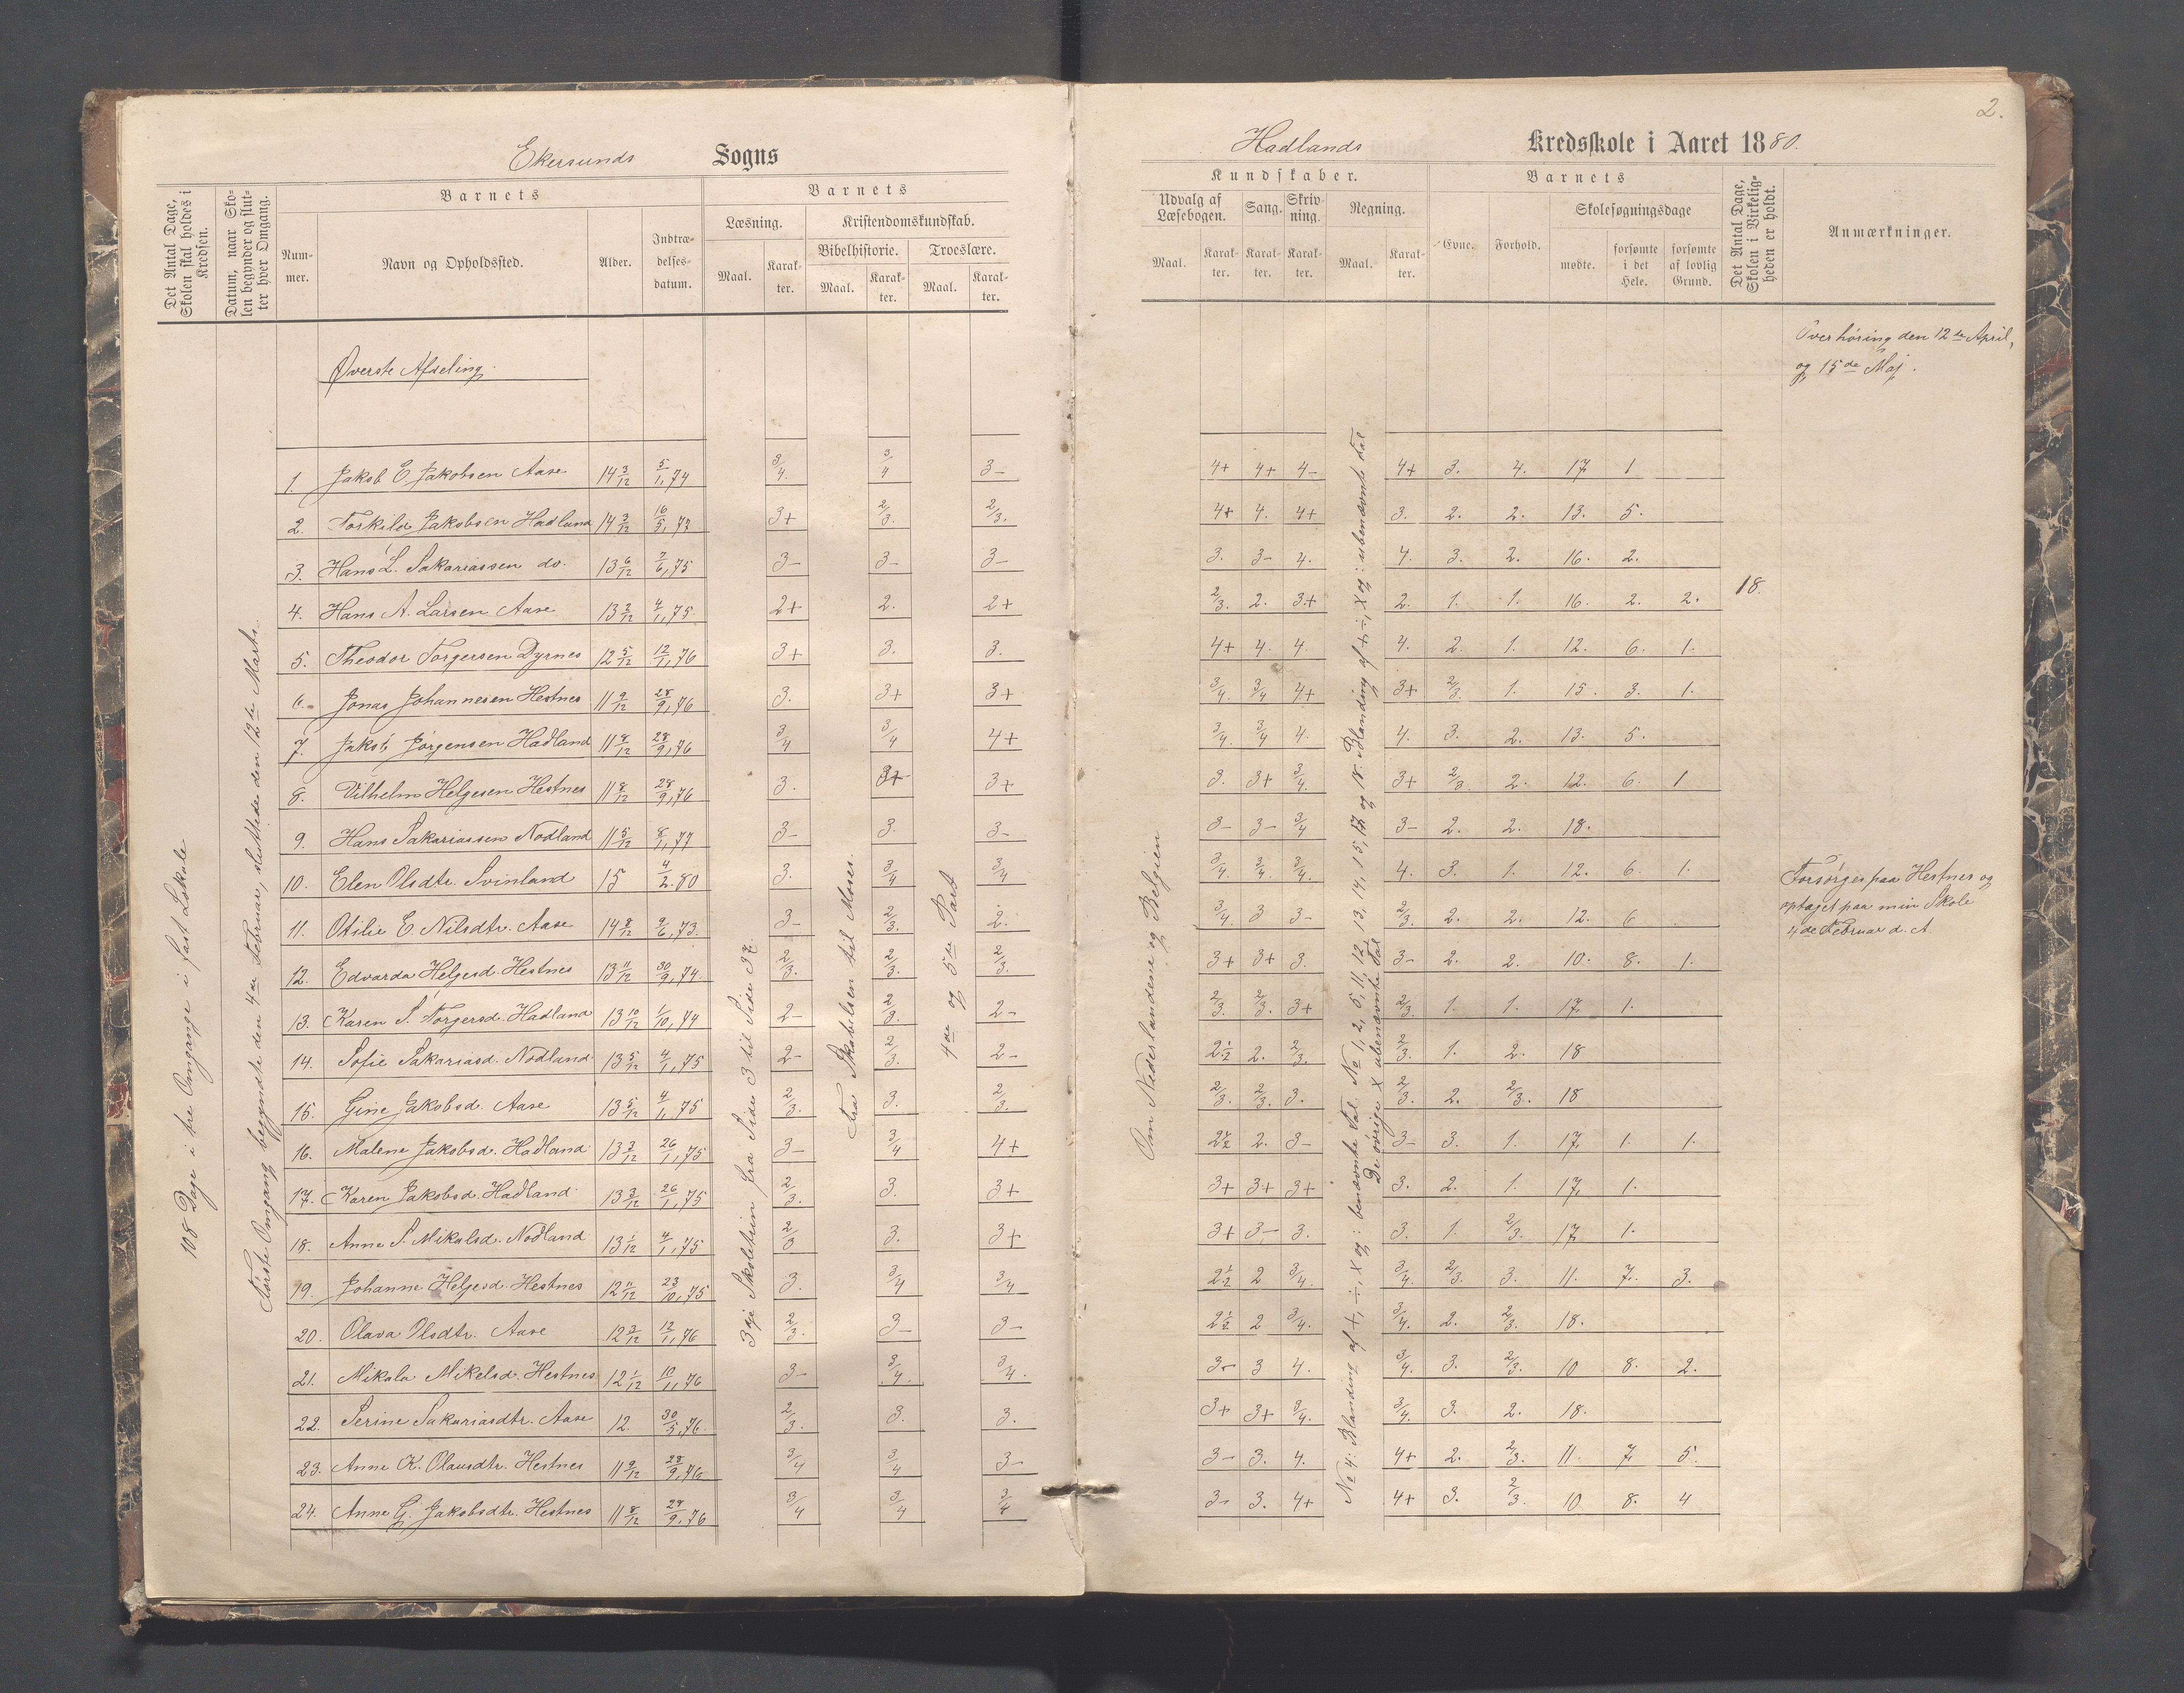 Ekersunds Sogns
Hadlands Kredsskole i Aaret 1880.
2.
Det Antal Dage, Skolen skal holdes i Kredsen.
Datum, naar Skolen begynder og slutter hver Omgang.
Barnets
Nummer.
Navn og Opholdssted.
Alder.
Indtrædelsesdatum.
Barnets
Læsning.
Maal.
Karakter.
Kristendomskundskab.
Bibelhistorie.
Maal.
Karakter.
Troeslære.
Maal.
Karakter.
Kundskaber.
Udvalg af Læsebogen.
Maal.
Karakter.
Sang.
Karakter.
Skrivning.
Karakter.
Regning.
Maal.
Karakter.
Barnets
Evne.
Forhold.
Skolesøgningsdage
mødte.
forsømte i det Hele.
forsømte af lovlig Grund.
Det Antal Dage, Skolen i Virkeligheden er holdt.
Anmærkninger.
108 Dage i tre Omgange i fast Lokale
Første Omgang begyndte den 4de Februar, sluttede den 12te Marts.
3dje Skoletrin fra Side 3 til Side 37.
Fra Skabelsen til Moses.
4de og 5te Part
Om Nederlandene og Belgien
No 4: Blanding af +, ÷, X og : benævnte Tal. No 1, 2, 5, 11, 12, 13, 14, 15, 17 og 18. Blanding af +, ÷, X og : ubenævnte Tal
De øvrige X ubenævnte Tal
18.
Overhøring den 12te April,
og 15de Maj.
Øverste Afdeling.
1. Jakob E. Jakobsen Aase 14 3/12 5/1, 74 3/4. 3/4 3- 4+ 4+ 4- 4+ 3. 4. 17 1
2. Torkild Jakobsen Hadland 14 3/12 16/5, 73 3+ 2/3. 2/3. 4+ 4. 4+ 3. 2. 2. 13. 5.
3. Hans L. Sakariassen do. 13 6/12 2/6, 75 3- 3- 3- 3. 3- 4. 4. 3. 2. 16. 2.
4. Hans A. Larsen Aase 13 2/12 4/1, 75. 2+ 2. 2+ 2/3. 2. 3+ 2. 1. 1. 16. 2. 2.
5. Theodor Torgersen Dyrnes 12 5/12 12/1, 76 3+ 3. 3. 4+ 4. 4. 4. 2. 1. 12. 6. 1.
6. Jonas Johannesen Hestnes 11 9/12 28/9, 76 3. 3+ 3+ 3/4 3/4 4+ 3+ 2/3. 1. 15. 3. 1.
7. Jakob Jørgensen Hadland 11 8/12 28/9, 76 3/4 3/4 4+ 3/4. 3/4 4. 4. 3. 2. 13. 5.
8. Vilhelm Helgesen Hestnes 11 8/12 28/9, 76 3. 3+ 3+ 3. 3+ 3/4. 3+ 2/3. 2. 12. 6. 1
9. Hans Sakariassen Nodland 11 5/12 8/1, 77 3- 3. 3- 3- 3- 3/4 3- 2. 2. 18.
10. Elen Olsdtr. Svinland 15 4/2. 80 3. 3/4 3/4 3/4. 3/4. 3/4. 4. 3. 1. 12. 6. 1.
Forsørges paa Hestnes og
optaget paa min Skole
4de Februar d. A.
11. Otilie E Nilsdtr. Aase 14 8/12 9/6, 73. 3- 2/3. 2. 3/4. 3 3- 2/3. 2. 2. 12. 6
12. Edvarda Helgesd. Hestnes 13 11/12 30/9, 74. 2/3. 2/3. 2/3. 3+ 3+ 3. 3- 2. 2. 10. 8. 1.
13. Karen S. Torgersd. Hadland 13 10/12 1/10, 74 2- 2/3. 2- 2/3. 2/3. 3+ 2/3. 1. 1. 17. 1.
14. Sofie Sakariasd. Nodland. 13 5/12 4/1, 75 2- 2/3. 2- 2 1/2 2. 2/3. 2/3. 1. 2. 18
15. Gine Jakobsd. Aase 13 5/12 4/1, 75 2/3. 3. 2/3. 2/3. 2/3. 3. 2/3. 2. 2/3. 18
16. Malene Jakobsd. Hadland 13 3/12 26/1, 75 3- 3/4 4+ 2 1/2 2. 3- 3- 3. 1. 17. 1. 1.
17. Karen Jakobsd. Hadland 13 3/12 26/1, 75 2/3. 3. 3+ 3+ 3+ 3+ 3. 2. 1. 17. 1.
18. Anne S. Mikalsd. Nodland 13 1/12 4/1, 75 2/3 3. 3+ 3+ 3- 3. 3. 1. 2/3. 17. 1.
19. Johanne Helgesd. Hestnes 12 11/12 23/10, 75 3. 3/4 3/4 2 1/2 2 3/4. 3/4. 2/3. 3. 11. 7. 3.
20. Olava Olsdtr. Aase 12 3/12 12/1, 76 2/3. 3- 3- 2 1/2 2 3/4. 3/4. 2. 2/3. 18.
21. Mikala Mikelsd. Hestnes 12 1/12 10/11, 76 3- 3/4. 3/4. 3- 3 4. 3/4. 3. 2/3. 10 8. 2.
22. Serine Sakariasdtr. Aase 12. 30/5, 76. 2/3. 3. 3. 3+ 3+ 3/4. 3/4. 3. 2. 18.
23. Anne K. Olausdtr. Hestnes 11 9/12 28/9, 76 3/4 3/4 3- 3- 3. 4. 4+ 2. 2/3. 11. 7. 5.
24. Anne G. Jakobsdtr. Hestnes 11 8/12 28/9, 76 3/4 3/4 3/4 3- 3. 4+ 4+ 3. 2/3. 10 8. 4